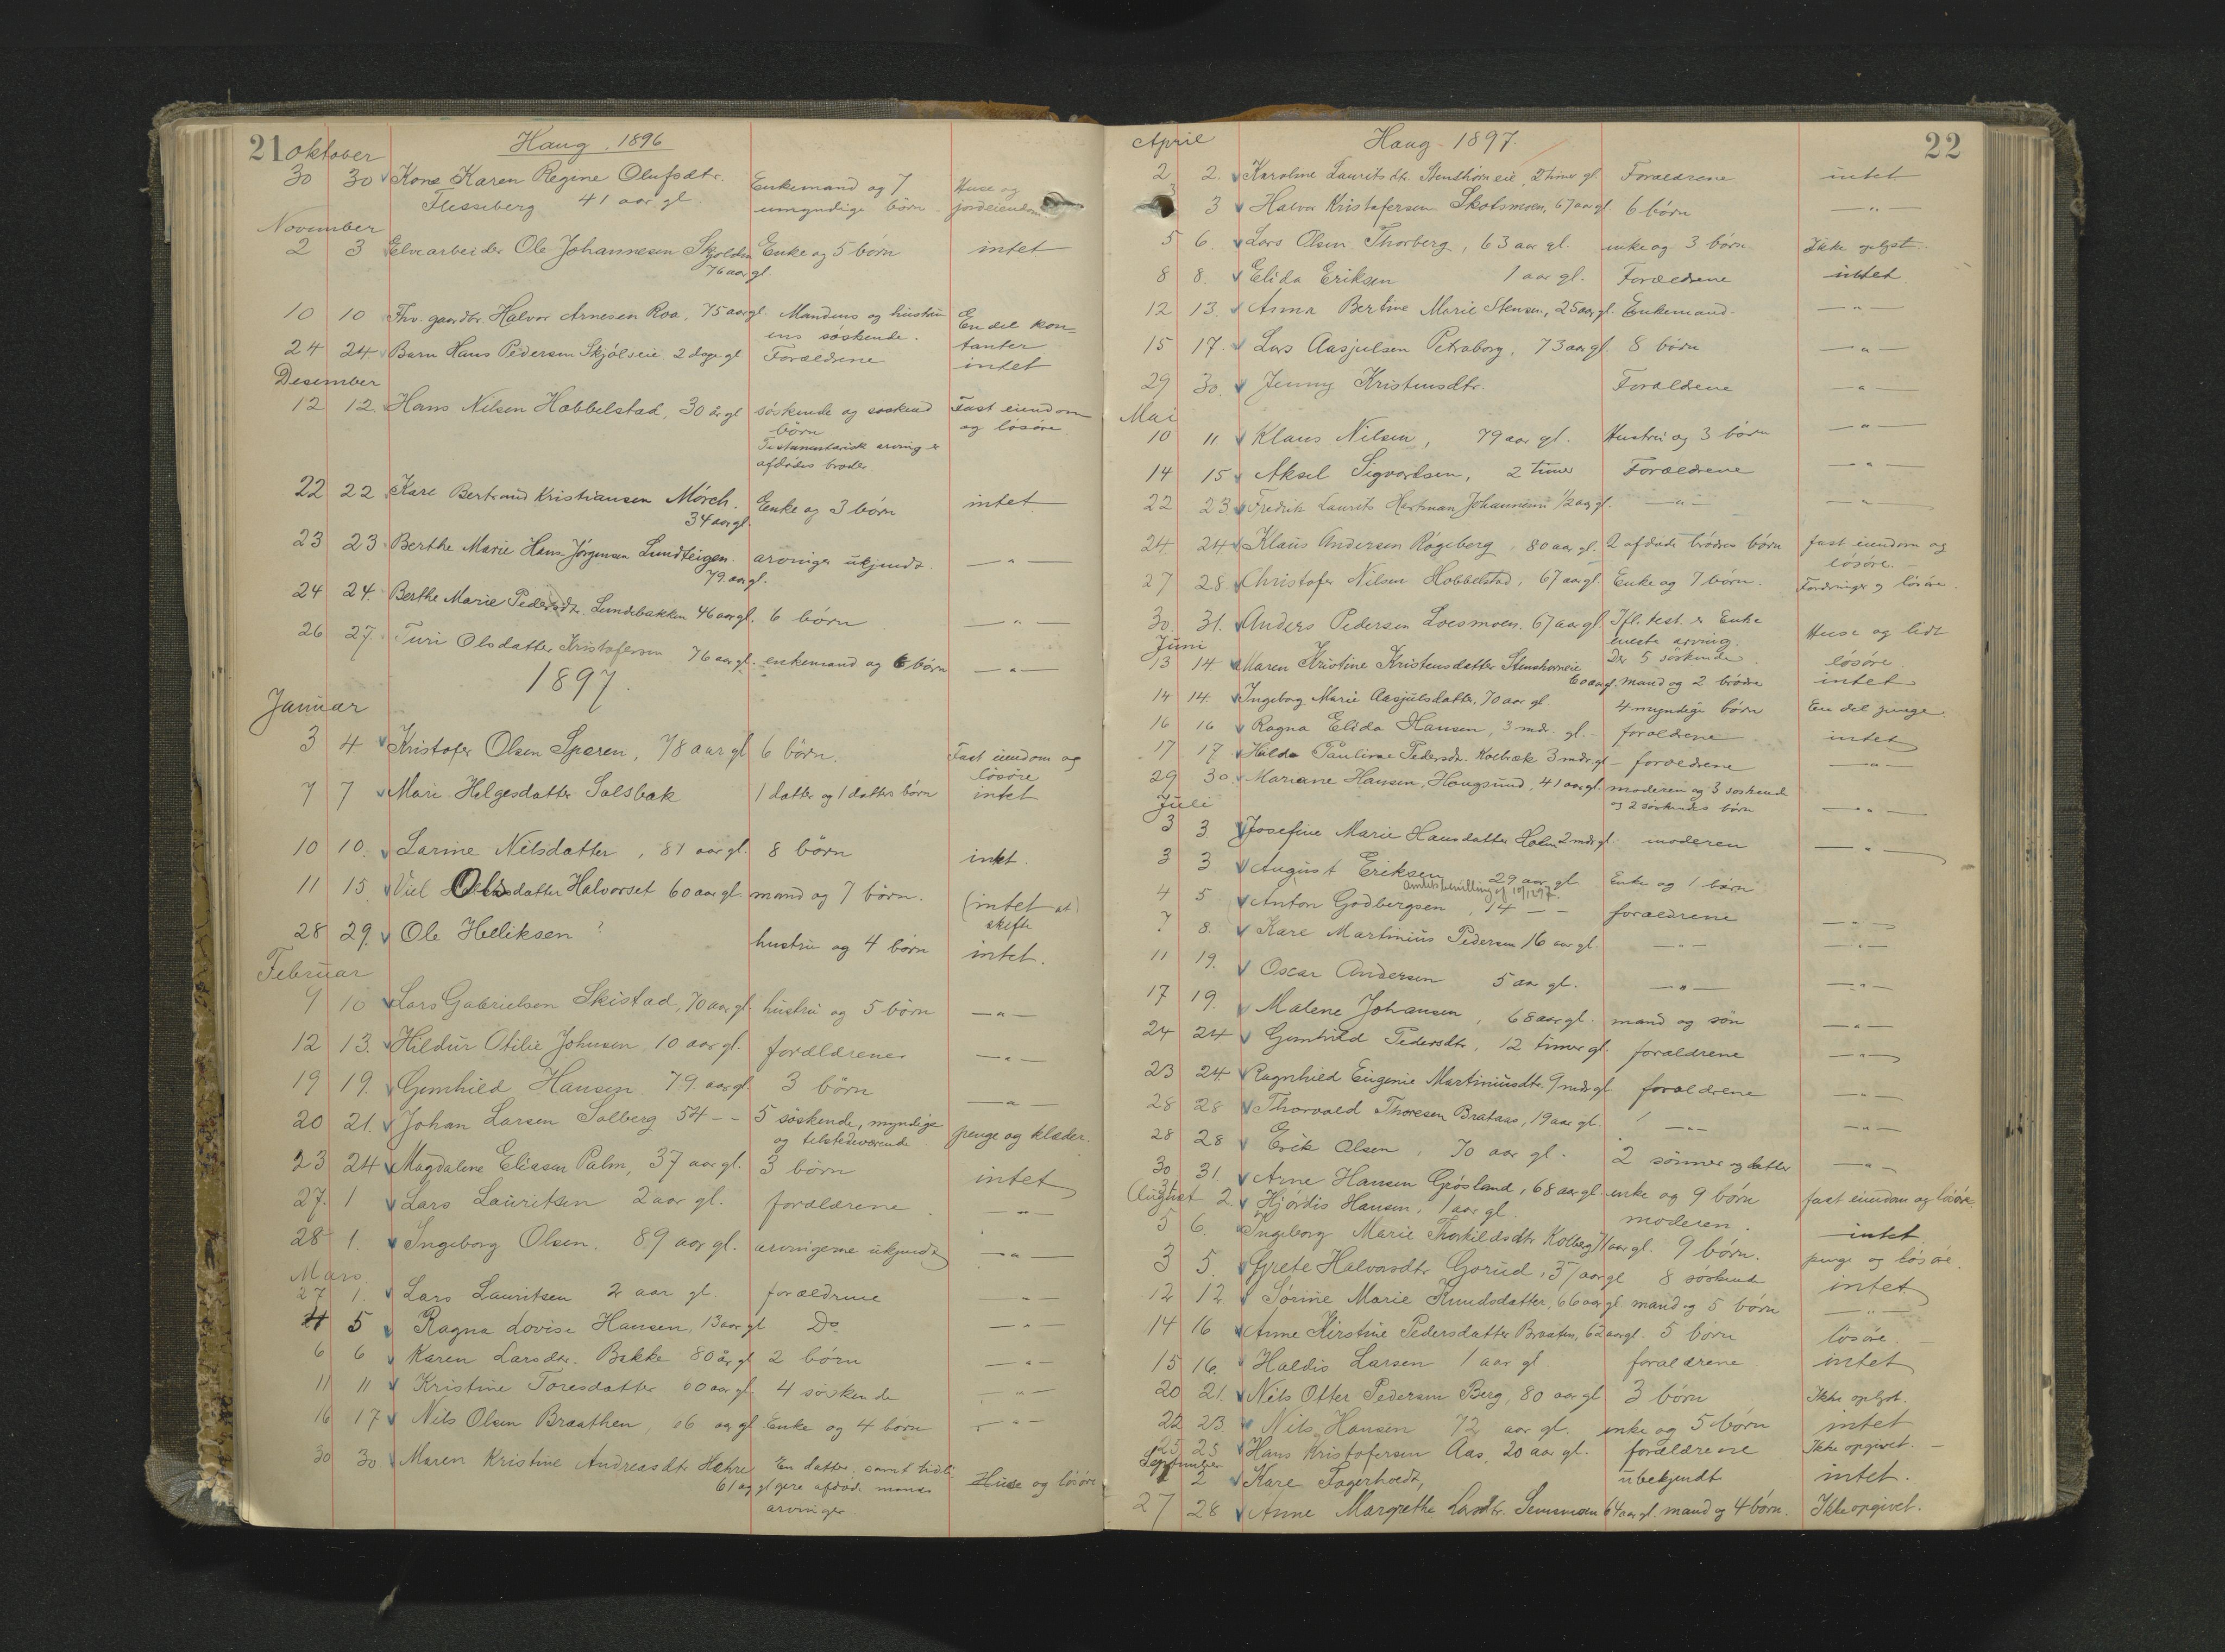 21 Oktober Haug. 1896
30 30 Kone Karen Regine Olufsdtr. Enkemand og 7 Huse og
Flesseberg 41 aar gl umyndige börn jordeiendom
November
2 3 Elvearbeider Ole Johannesen Skjolden Enke og 5 börn intet
76 aar gl
10 10 Fhv. gaardbr. Halvor Arnesen Roa, 75 aar gl. Mandens og hustru En del kon=
ens söskende. tanter
24 24 Barn Hans Pedersen Skjölseie 2 dage gl Forældrene intet
Desember
12 12. Hans Nilsen Hobbelstad, 30 år gl söskende og soskend Fast eiendom
börn og lösöre
Testamentarisk arving er
afdödes broder
22 22 Karl Bertrand Kristiansen Mörch. Enke og 3 börn intet
34 aar gl.
23 23 Berthe Marie Hans-Jörgensen Lundteigen. arvinger ukjendt. — " —
79 aar gl.
24 24. Berthe Marie Pedersdtr. Lundebakken 46 aar gl. 6 börn — " —
26 27. Turi Olsdatter Kristofersen 76 aar gl. enkemand og 6 börn — " —
1897.
Januar
3 4 Kristofer Olsen Speren, 78 aar gl 6 börn. Fast eiendom og
lösöre
7 7 Mari Helgesdatter Solsbak 1 datter og 1 datters börn intet
10 10. Larine Nilsdatter, 81 aar gl. 8 börn intet.
11 15. Viel Olsdatter Halvorset 60 aar gl. mand og 7 börn. (intet at)
skifte
28 29. Ole Helliksen ? hustru og 4 börn intet.
Februar
9 10 Lars Gabrielsen Skistad, 70 aar gl. hustru og 5 börn — " —
12 13. Hildur Otilie Johnsen 10 aar gl. forældrene — " —
19 19. Gunhild Hansen 79. aar gl 3 börn — " —
20 21. Johan Larsen Solberg 54 – – 5 söskende, myndige penge og klæder.
og tilstedeværende
23 24 Magdalene Eliasen Palm, 37 aar gl. 3 börn intet
27. 1 Lars Lauritsen 2 aar gl. forældrene. — " —
28 1. Ingeborg Olsen. 89 aar gl. arvingerne ukjendt — " —
Mars.
27 1. Lars Lauritsen 2 aar gl. forældrene — " —
4 5 Ragna Lovise Hansen, 13 aar gl Do — " —
6 6 Karen Larsdtr. Bakke 80 år gl 2 börn — " —
11 11 Kristine Toresdatter 60 aar gl. 4 söskende — " —
16 17 Nils Olsen Braathen, 66 aar gl Enke og 4 börn — " —
30 30 Maren Kristine Andreasdtr Hæhre En datter samt tidli Huse og lösöre
61 aar gl gere afdöde mands
arvinger.
April Haug 1897. 22
2 2. Karoline Lauritsdtr. Stenshorneie, 2 timer gl Forældrene intet
3 3 Halvor Kristofersen Skotsmoen, 67 aar gl. 6 börn — " —
5 6. Lars Olsen Thorberg, 63 aar gl. enke og 3 börn Ikke oplyst.
8 8. Elida Eriksen 1 aar gl. Forældrene intet
12 13. Anna Bertine Marie Stensen, 25 aar gl. Enkemand — " —
15 17. Lars Aasjulsen Petraborg, 73 aar gl. 8 börn — " —
29 30. Jenny Kristensdtr. Forældrene — " —
Mai
10 11 Klaus Nilsen, 79 aar gl. Hustru og 3 börn — " —
14 15 Aksel Sigvardsen, 2 timer Forældrene — " —
22 23 Fredrik Laurits Hartman Johannesen 1/2 aar gl. — " — — " —
24 24 Klaus Andersen Rögeberg, 80 aar gl. 2 afdöde brödres börn fast eiendom og
lösöre.
27 28. Christofer Nilsen Hobbelstad, 67 aar gl Enke og 7 börn. Fordringer og lösöre.
30. 31. Anders Pedersen Loesmoen. 67 aar gl. Ifl. test. er Enke Huse og lidt
eneste arving.
Juni Der 5 söskende lösöre.
13 14 Maren Kristine Kristensdatter Stenshorneie
60 aar gl. mand og 2 brödre intet
14 14. Ingeborg Marie Aasjulsdatter, 70 aar gl 4 myndige börn En del penge.
16 16 Ragna Elida Hansen, 3 mdr. gl. – forældrene intet
17 17 Hulda Pauline Pedersdtr. Kolbræk 3 mdr. gl – forældrene — " —
29 30. Mariane Hansen, Hougsund, 41 aar gl. moderen og 3 söskende
og 2 söskendes börn — " —
Juli
3 3 Josefine Marie Hansdatter Holm 2 mdr gl. moderen — " —
3 3 August Eriksen 29 aar gl Enke og 1 barn
Amtsbevilling af 10/12 97.
4 5 Anton Godbergsen, 14 – – forældrene — " —
7 8. Kare Martinius Pedersen 16 aar gl. — " — — " —
11 19. Oscar Andersen 5 aar gl. — " — — " —
17 19. Malene Johansen, 68 aar gl. mand og sön — " —
24 24 Gunhild Pedersdtr, 12 timer gl. forældrene — " —
23 24. Ragnhild Eugenie Martiniusdtr. 9 mdr gl forældrene — " —
28 28 Thorvald Thoresen Brataas, 19 aar gl. — " — — " —
28 28 Erik Olsen, 70 aar gl. 2 sönner og datter — " —
30 31. Arne Hansen Gröslund, 68 aar gl. enke og 9 börn fast eiendom og lösöre.
August
31 2. Hjördis Hansen, 1 aar gl. moderen. intet
5 6. Ingeborg Marie Thorkildsdtr Kolberg 71 aar gl. 9 börn. penge og lösöre.
3 5. Grete Halvorsdtr Gorud, 37 aar gl 8 söskende intet
12 12 Sörine Marie Knudsdatter, 66 aar gl. mand og 5 börn — " —
14 16 Anne Kirstine Pedersdatter Braaten, 62 aar gl. 5 börn lösöre.
15 16. Haldis Larsen 1 aar gl. forældrene intet
20 21. Nils Otter Pedersen Berg, 80 aar gl 3 börn Ikke oplyst.
22 23. Nils Hansen 72 aar gl. enke og 5 börn intet
25 25 Hans Kristofersen Aas, 20 aar gl. forældrene Ikke opgivet.
September
1 2 Kare Fagerhoedt, ubekjendt intet.
27 28 Anne Margrethe Larsdtr. Semsmoen 64 aar gl. mand og 4 börn. Ikke opgivet.